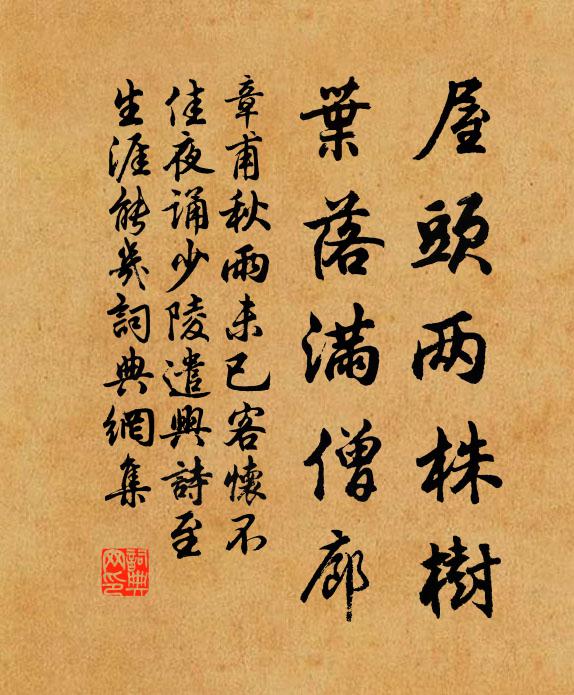 屋頭两株樹
葉落滿僧廊
章甫秋雨未已客懷不
佳夜诵少陵遣興詩至
生涯能幾詞典網集
詞典
网印